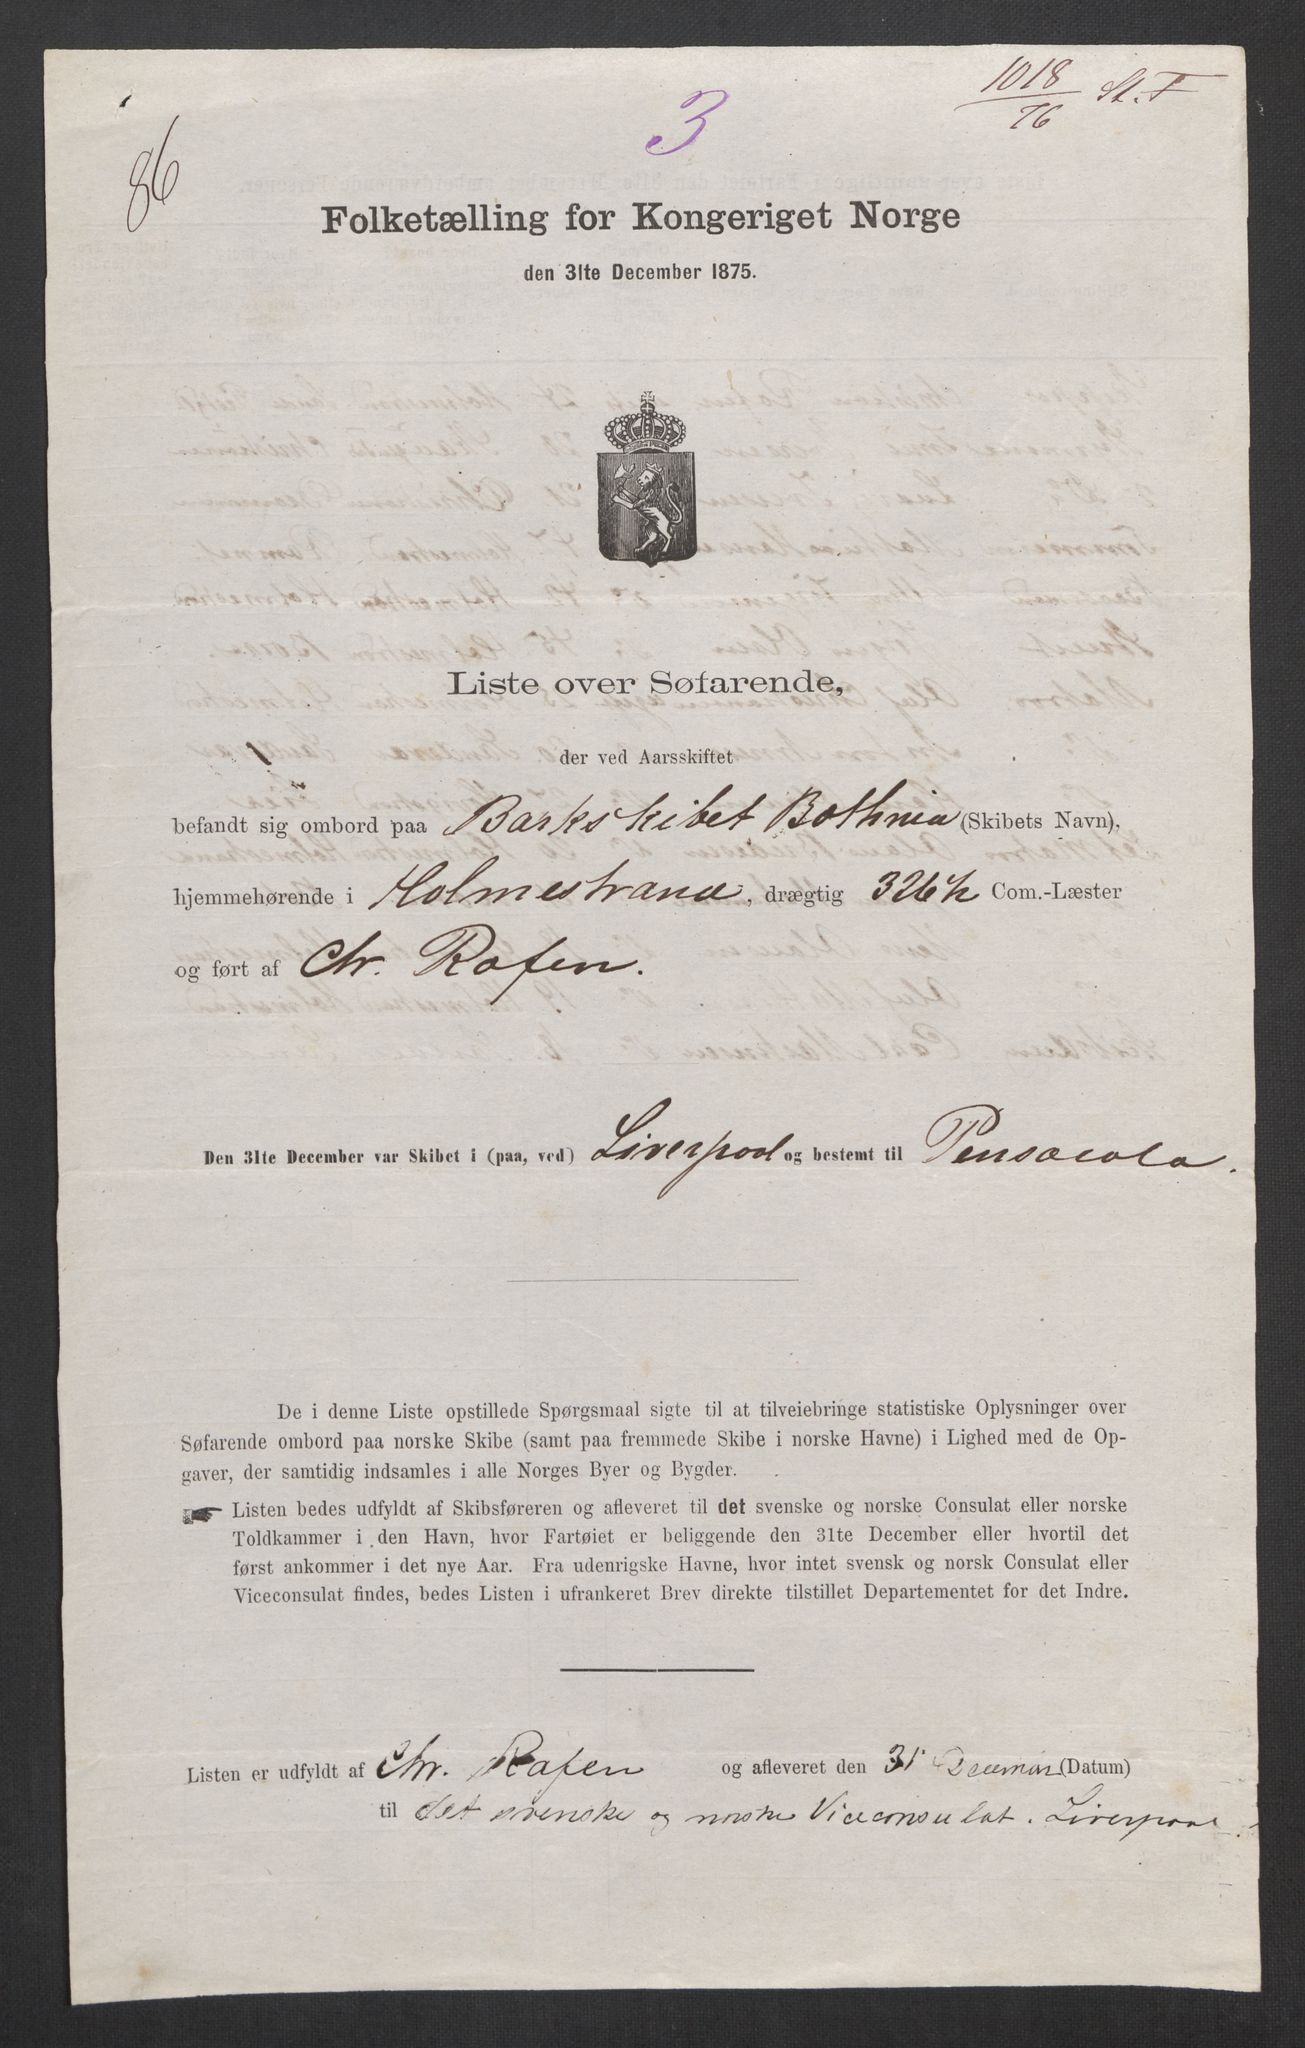 1018
76 St. F
3
86
Folketælling for Kongeriget Norge
den 31te December 1875.
Liste over Søfarende,
der ved Aarsskiftet
befandt sig ombord paa Barkskibet Bothnia (Skibets Navn),
hjemmehørende i Holmestrand, drægtig 326½ Com.-Læster
og ført af Chr. Rafen.
Den 31te December var Skibet i (paa, ved) Liverpool og bestemt til Pensacola.
De i denne Liste opstillede Spørgsmaal sigte til at tilveiebringe statistiske Oplysninger over
Søfarende ombord paa norske Skibe (samt paa fremmede Skibe i norske Havne) i Lighed med de Op-
gaver, der samtidig indsamles i alle Norges Byer og Bygder.
☛ Listen bedes udfyldt af Skibsføreren og afleveret til det svenske og norske Consulat eller norske
Toldkammer i den Havn, hvor Fartøiet er beliggende den 31te December eller hvortil det
først ankommer i det nye Aar. Fra udenrigske Havne, hvor intet svensk og norsk Consulat eller
Viceconsulat findes, bedes Listen i ufrankeret Brev direkte tilstillet Departementet for det Indre.
Listen er udfyldt af Chr. Rafen og afleveret den 31 (Datum)
til det svenske og norske Viceconsulat. Liverpool.